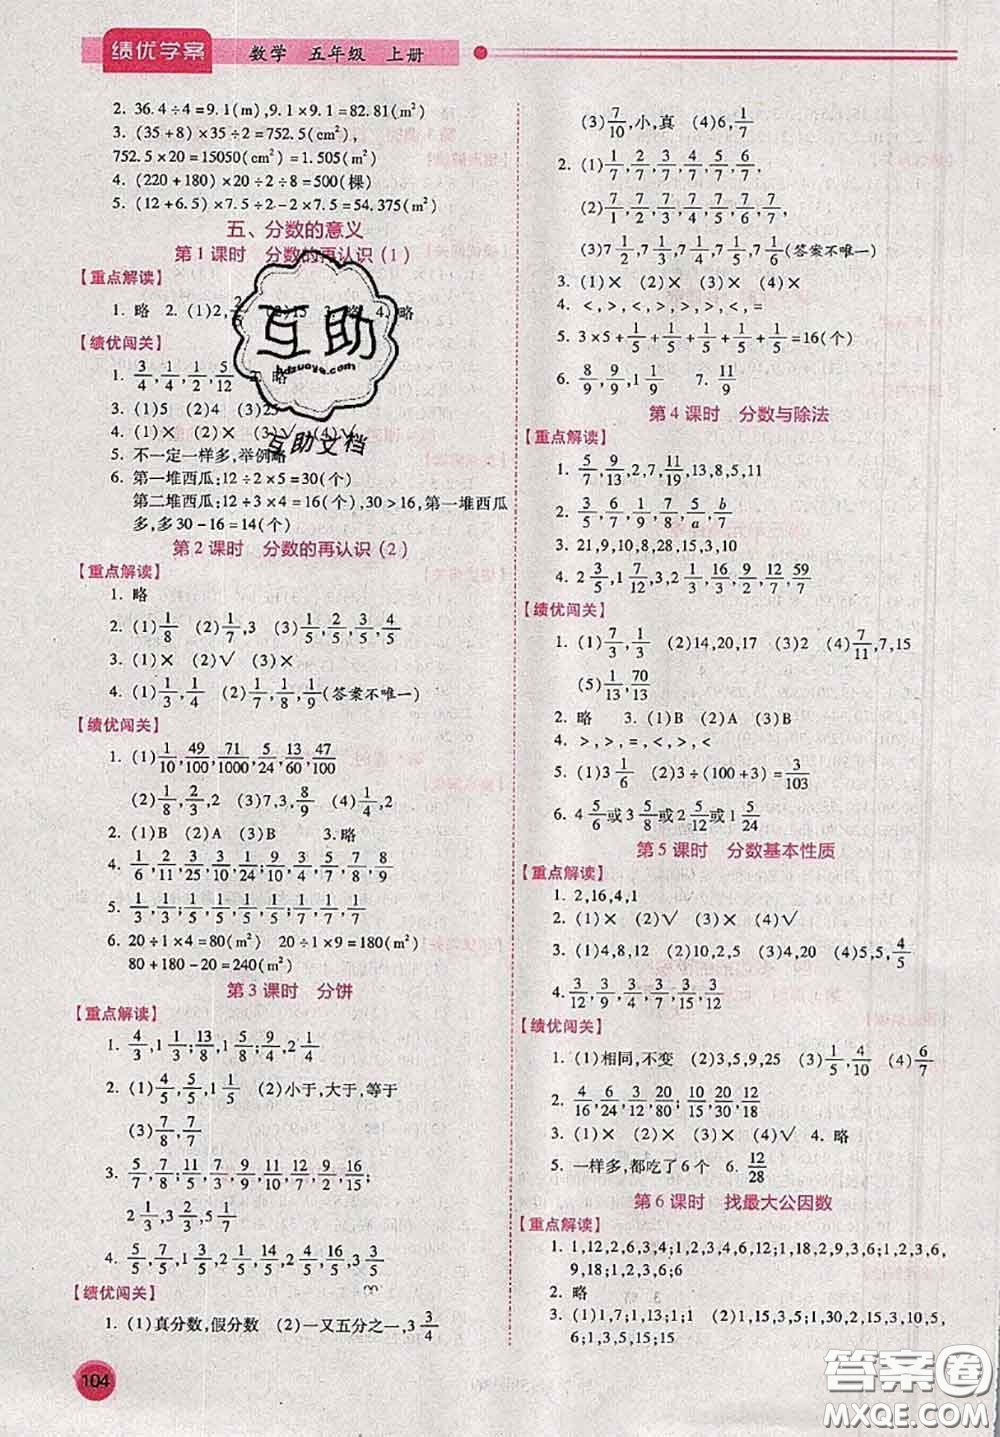 绩优学案 数学 五年级 上册
2. 36.4÷4=9.1(m),9.1×9.1=82.81(m²)
3. (35+8)×35÷2=752.5(cm²),
752.5×20=15050(cm²)=1.505(m²)
4. (220+180)×20÷2÷8=500(棵)
5. (12+6.5)×7.5÷2-2×7.5=54.375(m²)
五、分数的意义
第1课时 分数的再认识(1)
【重点解读】
1. 略 2. (1)2, (2)15 略 4. 略
【绩优闯关】
1. 3/4,1/4,1/2,5/12 2. 略
3. (1)5 (2)4 (3)25
4. (1)× (2)× (3)√ (4)√
5. 不一定一样多,举例略
6. 第一堆西瓜:12÷2×5=30(个)
第二堆西瓜:12÷3×4=16(个),30>16,第一堆西瓜
多,多30-16=14(个)
第2课时 分数的再认识(2)
【重点解读】
1. 略
2. (1)1/8 (2)1/7,3 (3)1/5,2/5,3/5,4/5
3. (1)× (2)√ (3)×
4. (1)1/3,1/4 (2)1/7,1/8,1/9(答案不唯一)
【绩优闯关】
1. (1)1/10,49/100,71/1000,5/24,13/60,47/100
(2)1/8,2/3,2 (3)7,3,8/9 (4)1/4,2
2. (1)B (2)A (3)B 3. 略
4. 1/6,2/11,3/25,1/10,1/24;1/10,3/24,4/11,5/25,2/6
5. 1/3,1/3,1/5,1/5,1/7,1/7,1/9,1/9
6. 20÷1×4=80(m²) 20÷1×9=180(m²)
80+180-20=240(m²)
第3课时 分饼
【重点解读】
1. 4/3,1 1/3;13/8,1 5/8;9/4,2 1/4
2. (1)5/7,4/5,1 1/5 (2)小于,大于,等于
(3)7/8,7/7
3. 5/7,7/8,11/5,7/10,9/11,12/7,9/2,16/15;
2 1/3,3 2/3,5 1/4
4. 5/5,7/5,1 2/5,14/5,2 4/5,16/5,3 1/5
【绩优闯关】
1. (1)真分数,假分数 (2)一又五分之一,3 3/4
(3)7/10,小,真 (4)6,1/7
2. (1)1/7,2/7,3/7,4/7,5/7,6/7
(2)7/7,7/6,7/5,7/4,7/3,7/2,7/1
(3)7 1/2,7 2/3,7 5/6(答案不唯一)
3. (1)× (2)× (3)× (4)×
4. <,>,<,>,>,>,<,=
5. 3×5+1/5+1/5+1/5+1/5+1/5=16(个)
6. 8/9,9/9,1 1/9 7. 9/11
第4课时 分数与除法
【重点解读】
1. 5/7,4/9,2,7,11/13,19,13,8,11
2. 3/5,2/7,1/9,7/8,5/a,b/7
3. 21,9,10,8,28,15,3,10
4. 2 3/5,1 7/12,3 1/6,16/3,9/4,12/5,59/7
【绩优闯关】
1. (1)7/3,1/3 (2)14,20,17 (3)2 (4)7/11,7,15
(5)1/13,70/13
2. 略 3. (1)B (2)A (3)B
4. >,>,=,<,>,<
5. (1)3 1/6 (2)3÷(100+3)=3/103
6. 4 5/6或3 5/8或2 5/12或1 5/24
第5课时 分数基本性质
【重点解读】
1. 2,16,4,1
2. (1)× (2)√ (3)√ (4)√
3. (1)4,8,12 (2)3,10,12 (3)4,20 (4)5,4/5
4. 3/12,9/12,8/12,6/12,4/12,10/12
【绩优闯关】
1. (1)相同,不变 (2)3,5,9,25 (3)1/5,4/10 (4)6/7
2. 4/16,6/24,3/12,20/80;10/15,20/30,12/18
3. (1)× (2)× (3)× (4)√ 4. 略
5. 一样多,都吃了6个 6. 12/28
第6课时 找最大公因数
【重点解读】
1. 1,12,2,6,3,4;1,2,3,6,9,18;1,2,3,6;6;1,2,3,6,
9,18;1,2,3,6;6
2. 略
3. (1)1,7;1,13;1;1 (2)1,15,3,5;1,2,15,30,3,10,5,
6;1,3,5,15;15
104
互助
hdzuoye.com
互助文档
答案圈
MXQE.COM